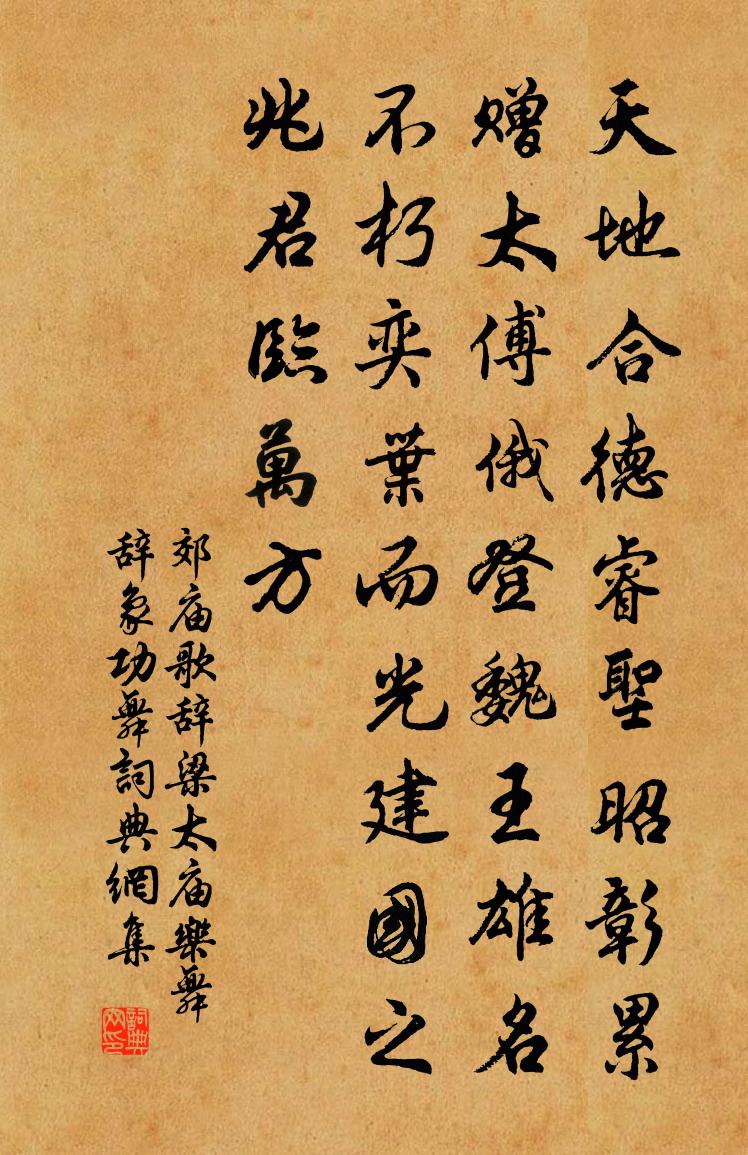 天地合德睿聖昭彰累
贈太傅俄登魏王雄名
不朽奕葉而光建國之
兆君臨萬方
郊庙歌辞梁太庙樂舞
辞象功舞詞典網集
詞典网印